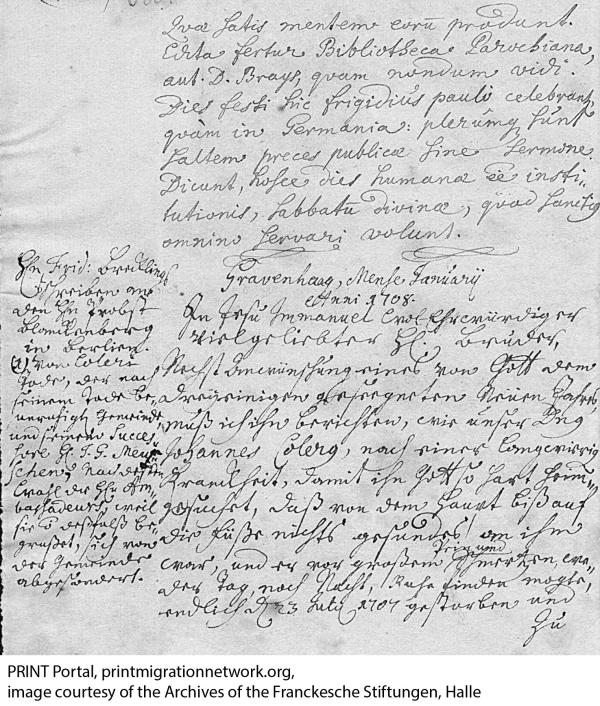 Quæ satis mentem eorū produnt.
Edita fertur Bibliotheca Parochiana,
aut. D. Brays, quam nondum vidi.
Dies festi hic frigidius paulò celebrant,
quàm in Germania: plerumq sunt
saltem preces publicæ sine sermone.
Dicunt, hosce dies humanæ eē insti-
tutionis, sabbatū divinæ, quod
omnino servari volunt.
Hn Frid: Brecklings
Schreiben an
den Hn Probst
Blanckenberg
in Berlin.
(1) von Coleri
Tode, der nach
seinem Tode
Gemeinde,
und seinem Succes-
sore H. J. G.
schen, nach der
Wahl der Hn Am-
bassadeurs, weil
sie
sich von
der Gemeinde
abgesondert.
Gravenhaag, Mense Januarij
Anni 1708.
In Jesu Immanuel WolEhrwürdiger
Vielgeliebter H. Bruder,
Nechst Anwünschung eines von Gott dem
dreyeinigen geseegneten Neuen Jahres,
muß ich ihn berichten, wie unser
Johannes Colerg, nach einer langwierig
Kranckheit, damit ihn Gott so hart heim-
gesuchet, daß von dem Haupt biß auf
die Füße nichts gesundes an ihm
war, und er vor großem Pein und Schmertzen, we-
der Tag, noch Nacht, Ruhe finden mögte,
endlich d. 23 July 1707 gestorben und
Zu
PRINT Portal, printmigrationnetwork.org,
image courtesy of the Archives of the Franckesche Stiftungen, Halle